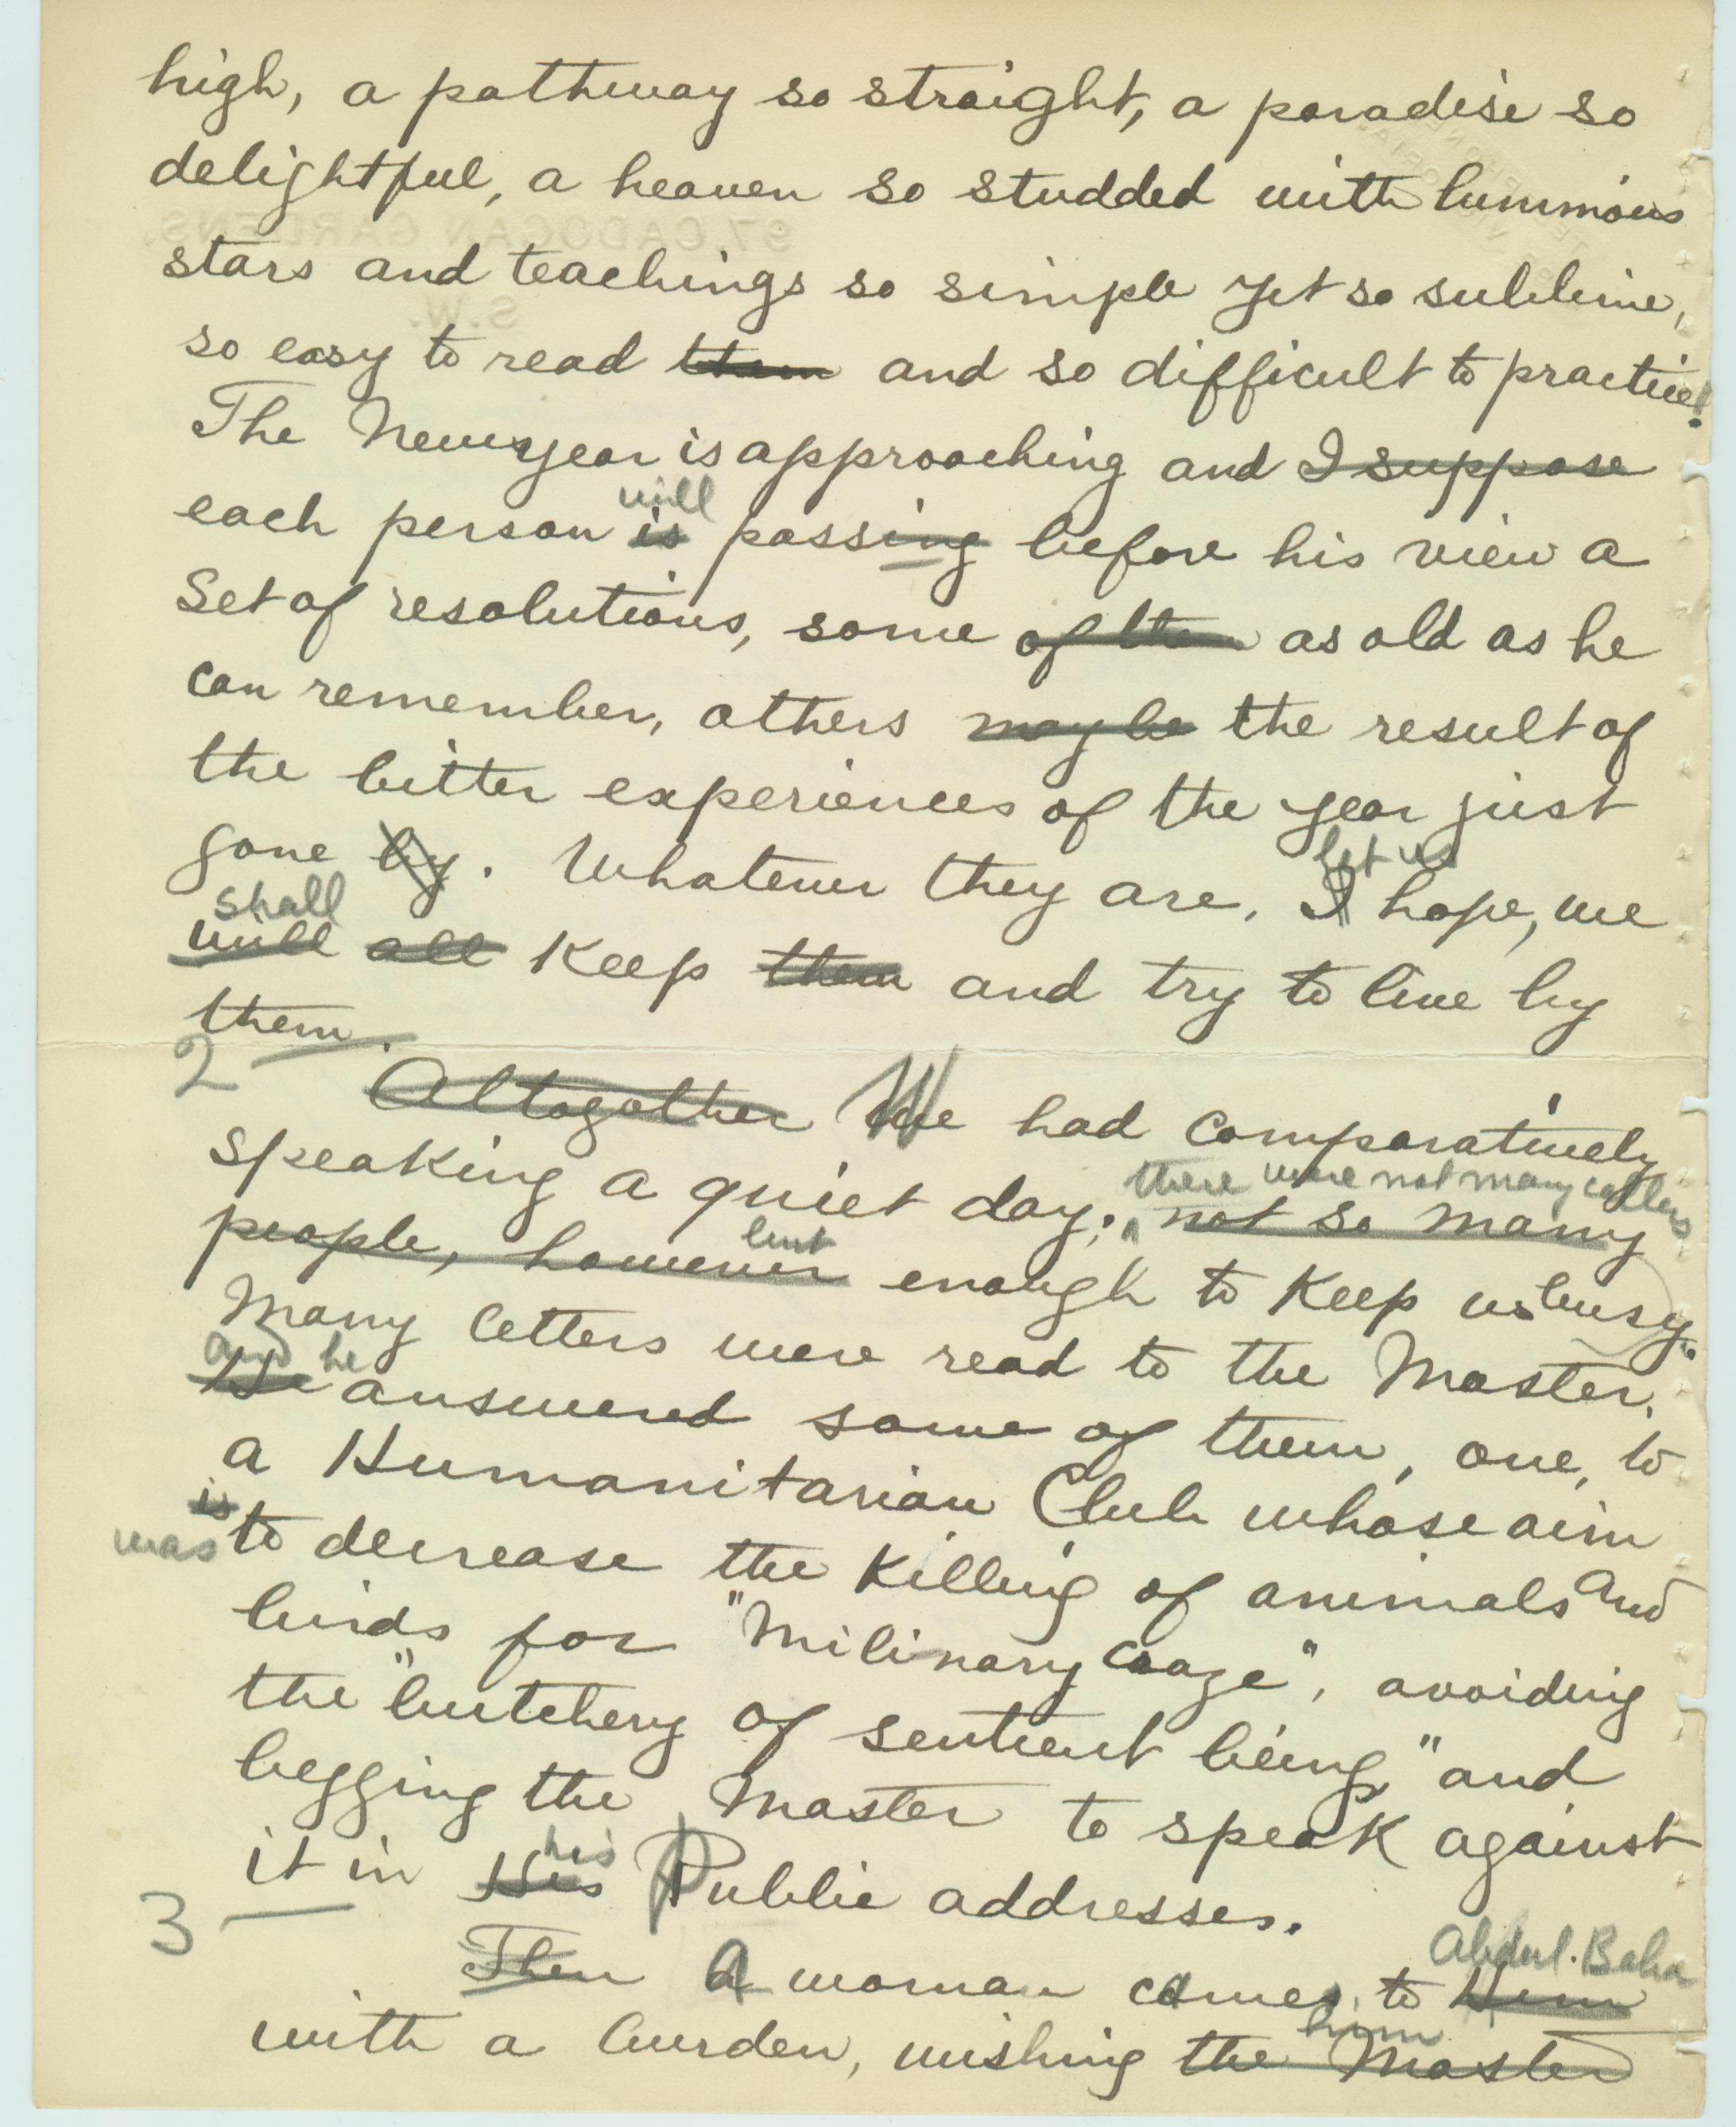 high, a pathway so straight, a paradise so
delightful, a heaven so studded with luminous
stars and teachings so simple yet so sublime,
so easy to read them and so difficult to practice!
The New year is approaching and I suppose
will
each person is passing before his view a
set of resolutions, some of them as old as he
can remember, others may be the result of
the bitter experiences of the year just
gone by. Whatever they are, I hope, we
let us
shall
will all keep them and try to live by
them.
2
Altogether We had comparatively
speaking a quiet day; not so many
there were not many callers
people, however enough to keep us busy.
but
Many letters were read to the Master.
and he
He answered some of them, one, to
a Humanitarian Club whose aim
is
was to decrease the killing of animals and
birds for "Milinary Craze", avoiding
the "butchery of sentient being" and
begging the Master to speak against
it in His Public addresses.
his
3
Then A woman comes to Him
Abdul. Baha
with a burden, wishing the Master
him
97, CADOGAN GARDENS,
S.W.